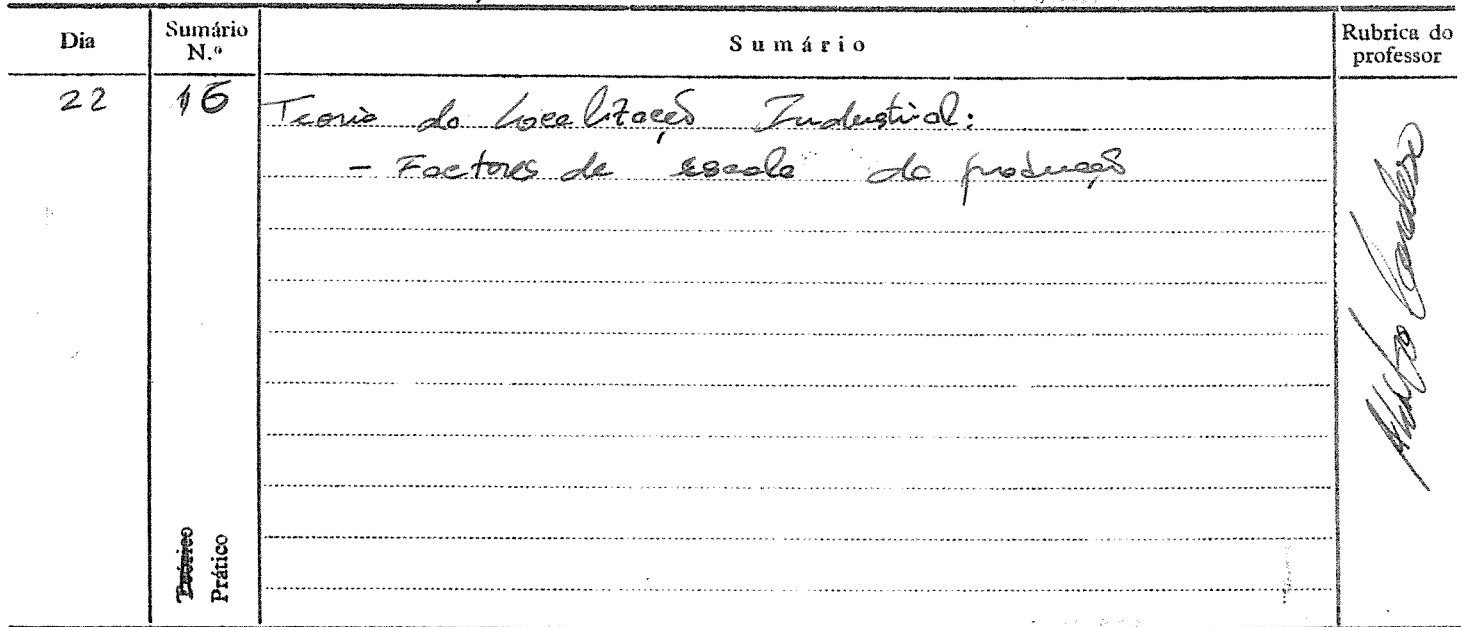 Dia
Sumário N.º
Sumário
Rubrica do professor
22
16
Teoria da Localização Industrial:
- Factores de escala da produção
Teórico
Prático